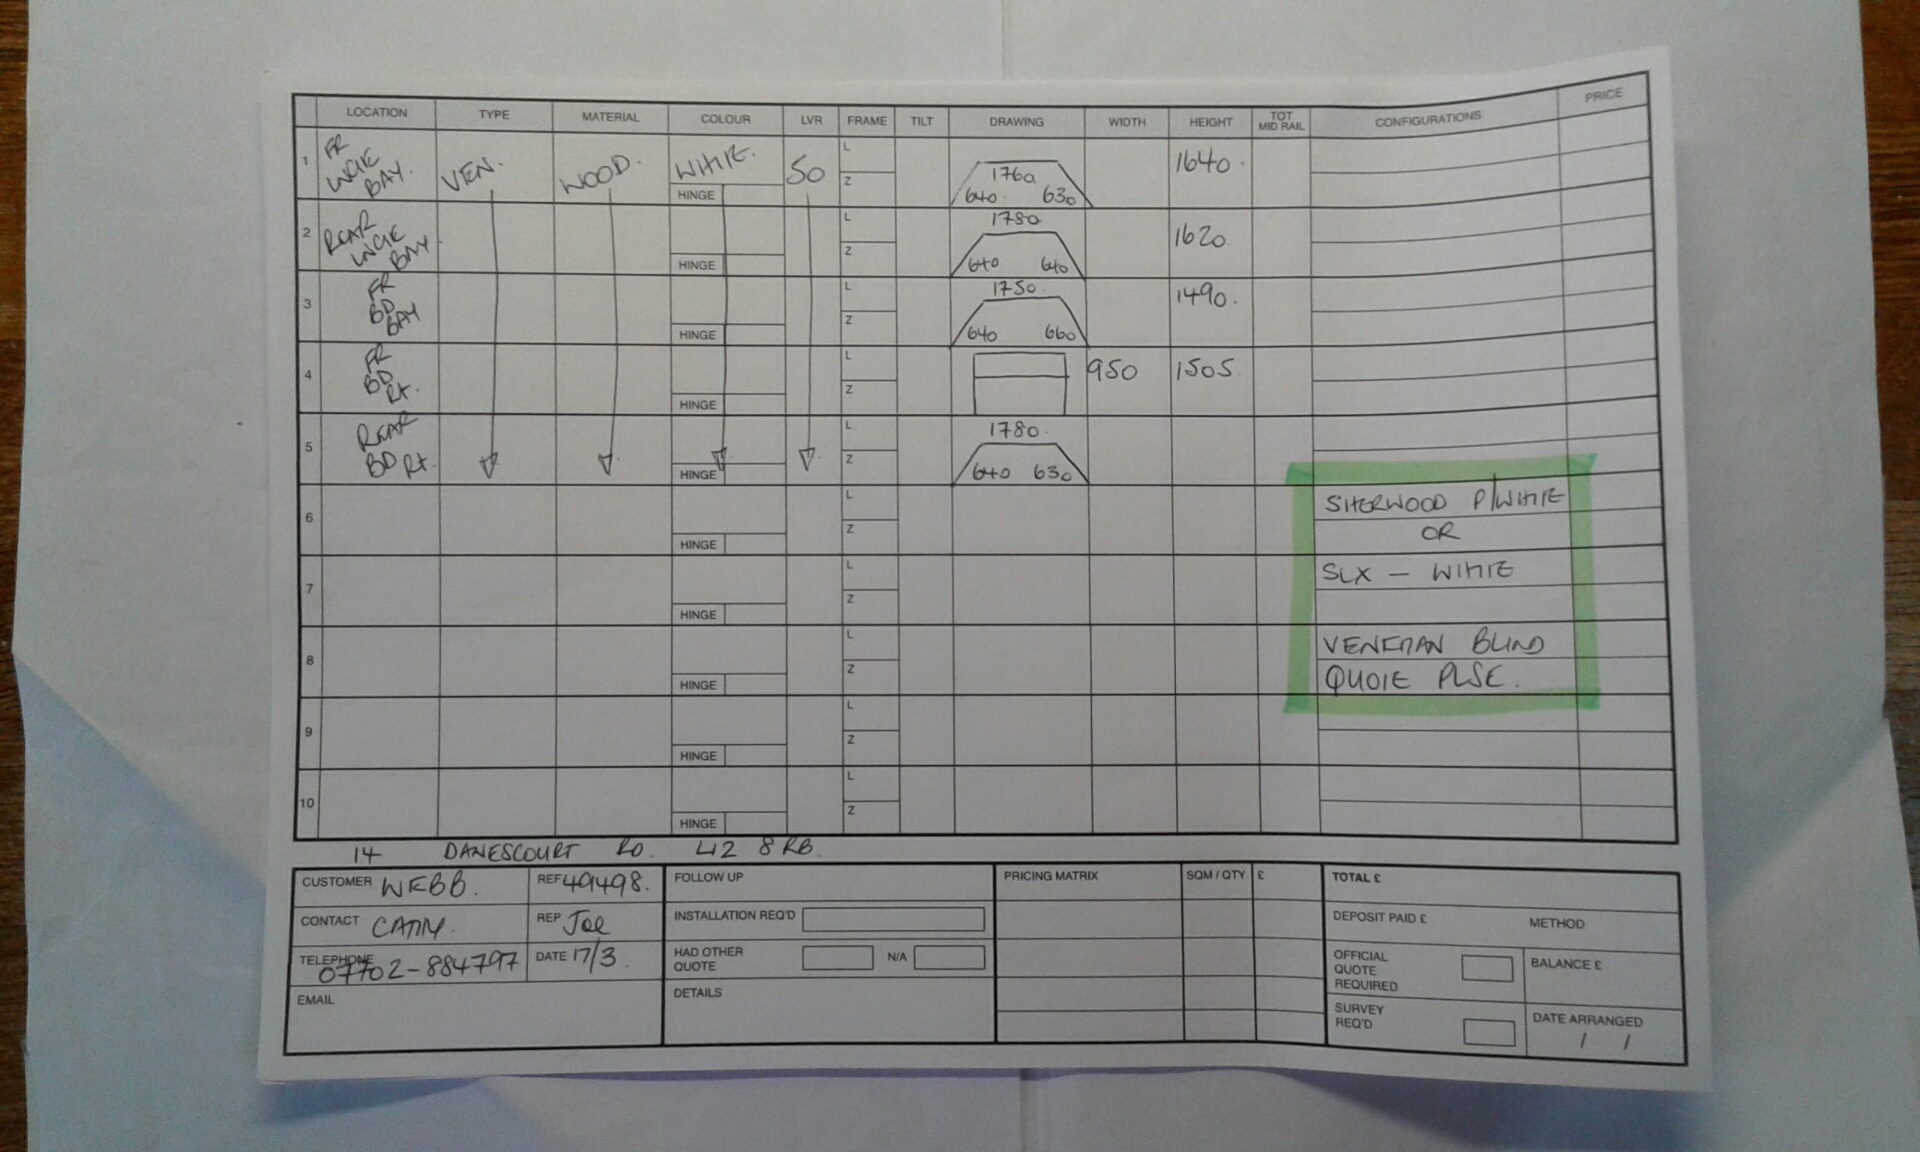 LOCATION TYPE MATERIAL COLOUR LVR FRAME TILT DRAWING WIDTH HEIGHT TOT MID RAIL CONFIGURATIONS PRICE
1 FR LNGIE BAY. VEN. WOOD. WHITE. 50 L 1760 1640.
HINGE Z 640 630
2 REAR LNGIE BAY L 1780 1620
HINGE Z 640 640
3 FR BD BAY L 1750 1490.
HINGE Z 640 660
4 FR BD Rt. L 950 1505
HINGE Z
5 REAR BD Rt. L 1780.
HINGE Z 640 630
6 L SHERWOOD P/WHITE
HINGE Z OR
7 L SLX - WHITE
HINGE Z
8 L VENETIAN BLIND
HINGE Z QUOTE PLSE.
9 L
HINGE Z
10 L
HINGE Z
14 DANESCOURT RD. L12 8RB
CUSTOMER WEBB. REF 49498. FOLLOW UP PRICING MATRIX SQM / QTY £ TOTAL £
CONTACT CATHY. REP Joe INSTALLATION REQ'D DEPOSIT PAID £ METHOD
TELEPHONE 07702-884797 DATE 17/3. HAD OTHER QUOTE N/A OFFICIAL QUOTE REQUIRED BALANCE £
EMAIL DETAILS SURVEY REQ'D DATE ARRANGED
/ /